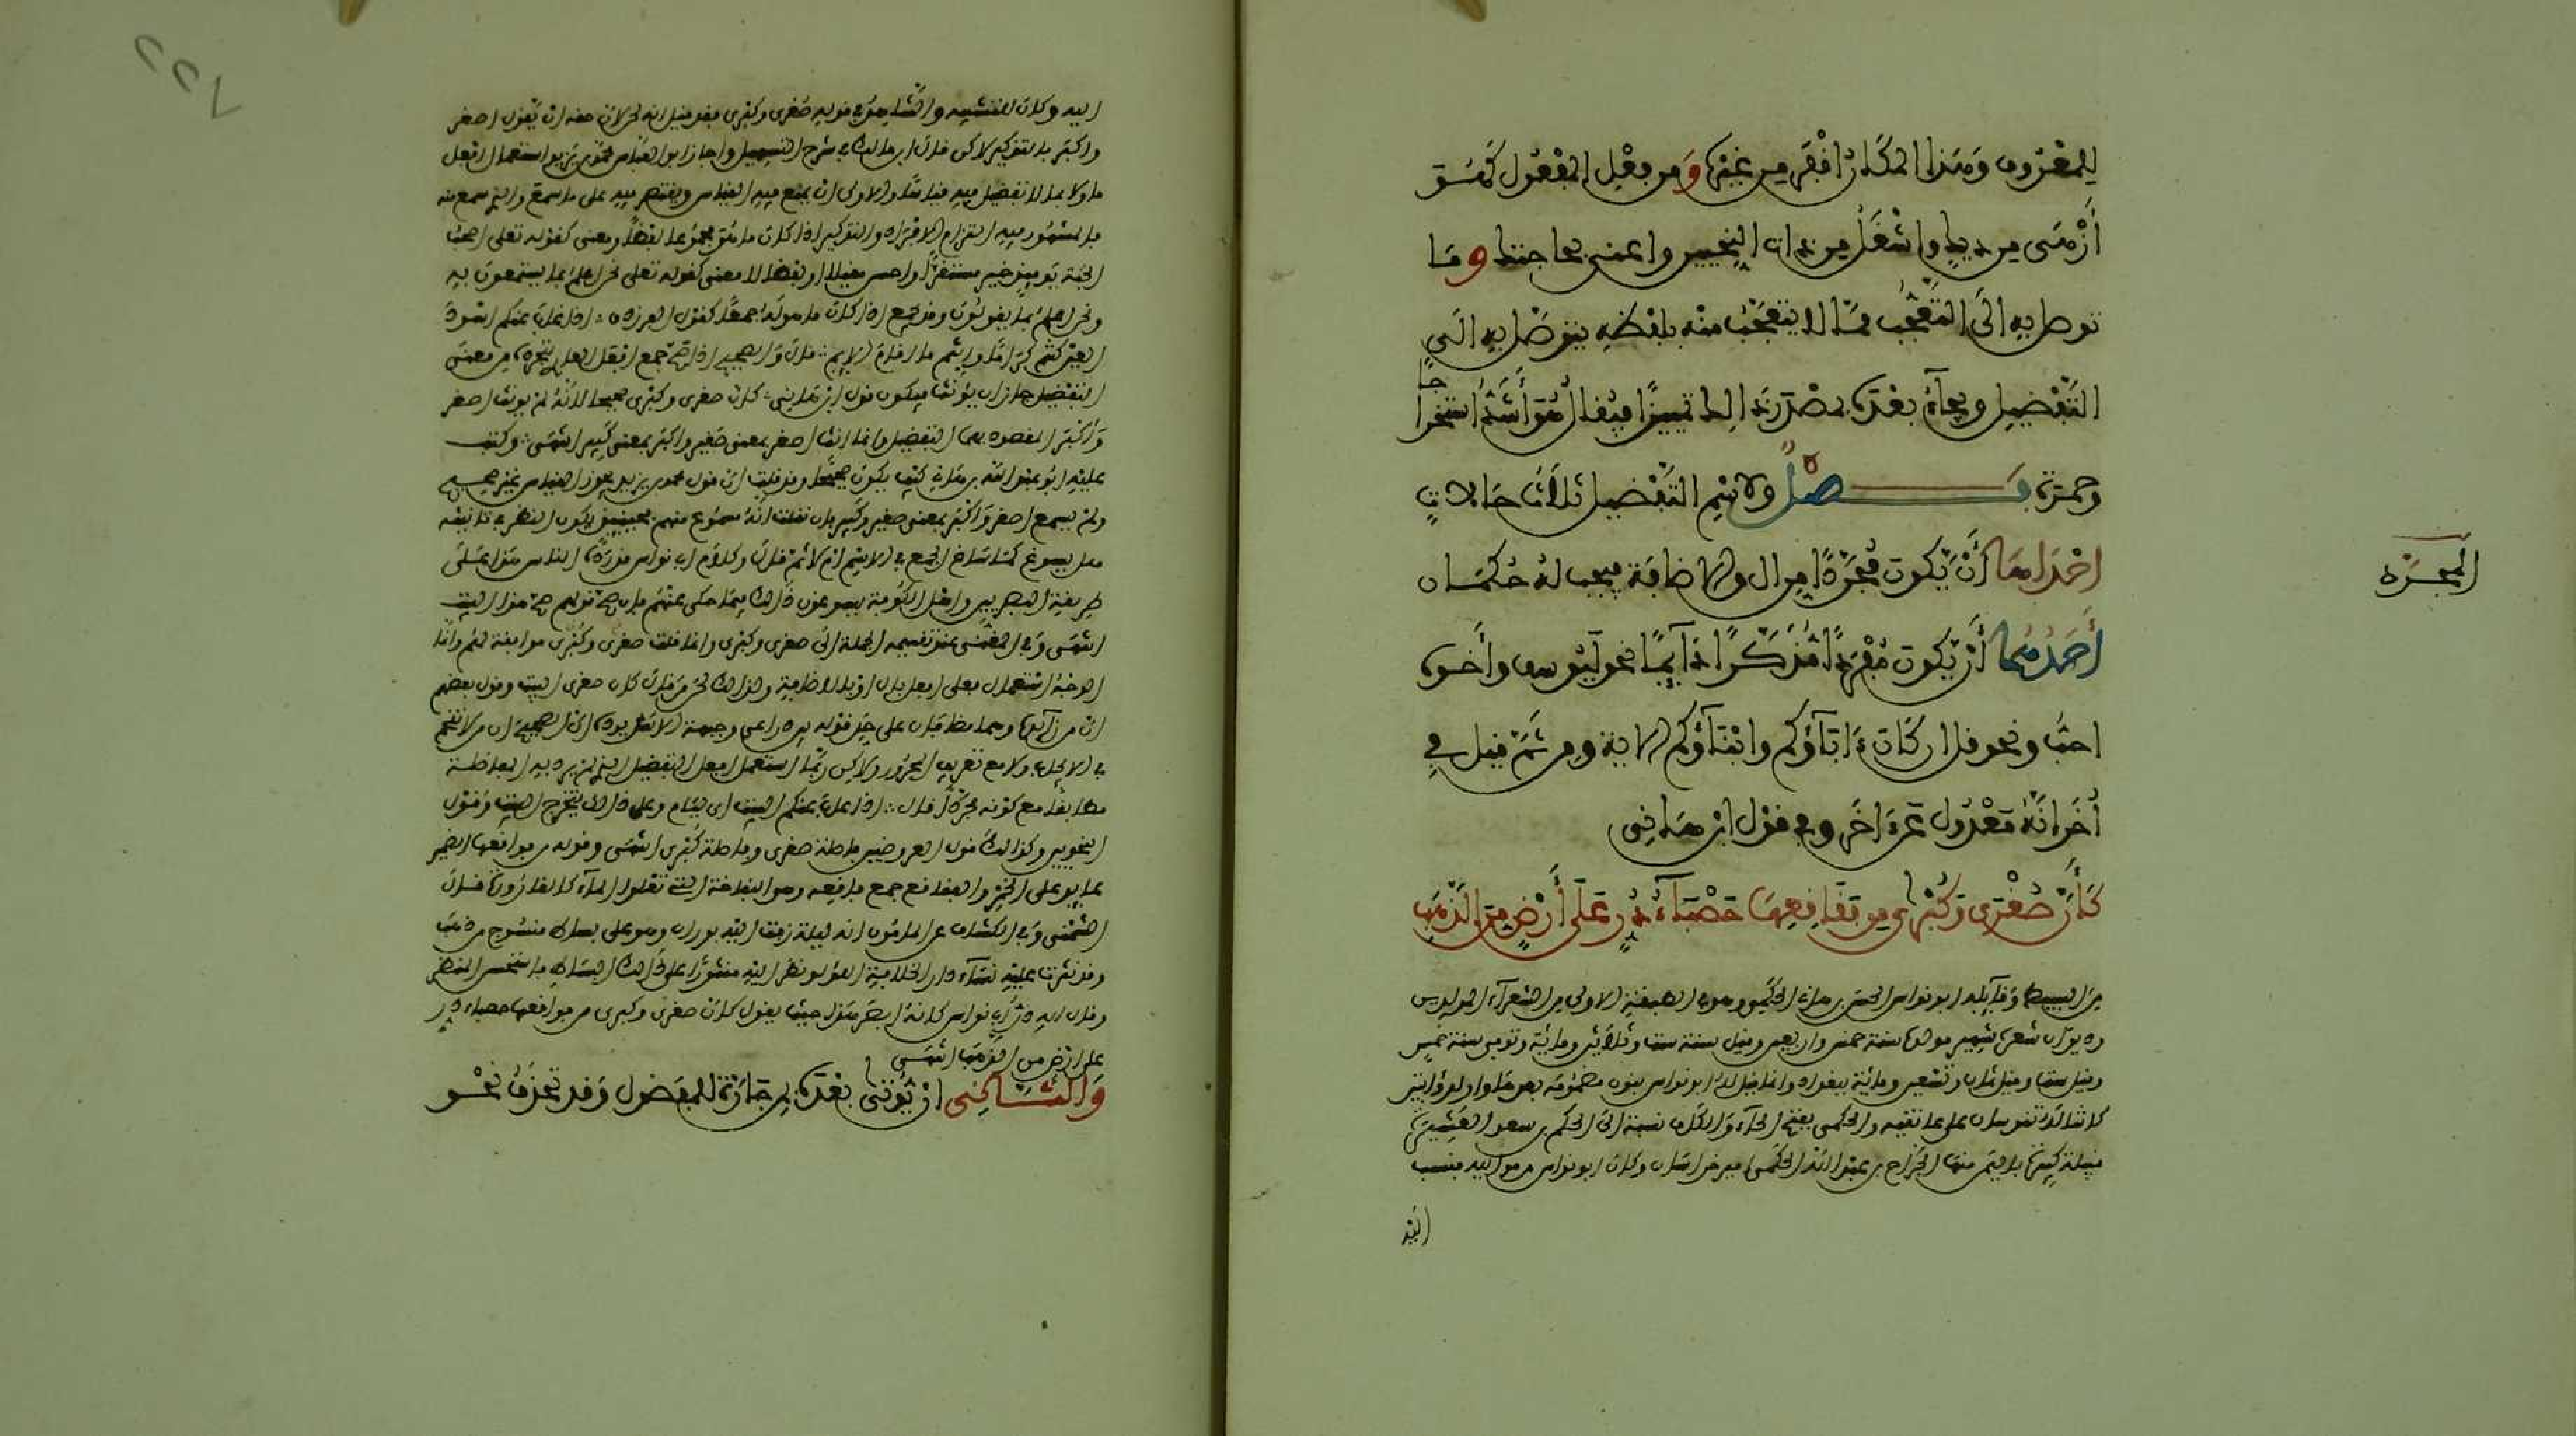 للمعروف وهذا المكان أقفر من غيره ومن فعل المفعول كهُو
أزهى من ديك وأشغل من ذات النحيين وأعنى بحاجتك وما
توصل به إلى التعجب مما لا يتعجب منه بلفظه يتوصل به إلى
التفضيل ويجاء بعده بمصدر ذلك تمييزا فيقال هو أشد استخراجا
وحمرة فصل ولاسم التفضيل ثلاث حالات
المجرد
احداها أن يكون مجردا من ال والاضافة فيجب له حكمان
أحدهما أن يكون مفردا مذكرا دائما نحو ليوسف وأخوه
احب ونحو قل ان كان ءاباؤكم وابناؤكم الاية ومن ثم قيل في
أخر انه معدول عن ءاخر وفي قول ابن هانئ
كأن صغرى وكبرى من فقاقعها حصباء در على أرض من الذهب
من البسيط وقائله ابو نواس الحسن بن هانئ الحكمي وهو من الطبقة الاولى من الشعراء المولدين
وديوان شعره شهير مولده سنة خمس واربعين وقيل سنة ست وثلاثين ومائة وتوفي سنة خمس
وقيل ست وقيل ثمان وتسعين ومائة ببغداد وانما قيل له ابو نواس بنون مضمومة بعدها واو لذؤابتين
كانتا له تنوسان على عاتقيه والحكمي بفتح الحاء والكاف نسبة الى الحكم بن سعد العشيرة
قبيلة كبيرة باليمن منها الجراح بن عبد الله الحكمي امير خراسان وكان ابو نواس من مواليه فنسب
اليه
٢٢٧
اليه وكان للتشبيه والشاهد في قوله صغرى وكبرى فقد قيل انه لحن لان حقه ان يقول اصغر
واكبر بالتذكير لاكن قال ابن مالك في شرح التسهيل واجاز ابو العباس محمد بن يزيد استعمال افعل
ماولا بما لا تفضيل فيه قياسا والاولى ان يمنع فيه القياس ويقتصر فيه على ما سمع والذي سمع منه
فالمشهور فيه التزام الافراد والتذكير اذا كان ما هو مجموعا لفظا ومعنى كقوله تعلى اصحب
الجنة يومئذ خير مستقرا واحسن مقيلا او لفظا لا معنى كقوله تعلى نحن اعلم بما يستمعون به
ونحن اعلم بما يقولون وقد يجمع اذا كان ما هو له جمعا كقول الفرزدق اذا غاب عنكم اسود
العين كنتم كراما وانتم ما اقام الائم قال والصحيح اذا صح جمع افعل العاري لتجرده من معنى
التفضيل جاز ان يؤنث فيكون قول ابن هانئ كان صغرى وكبرى صحيحا لانه لم يؤنث اصغر
وأكبر المقصود بهما التفضيل وانما انث اصغر بمعنى صغير واكبر بمعنى كبير انتهى وكتب
عليه ابو عبد الله بن هانئ كيف يكون صحيحا وقد قلت ان قول محمد بن يزيد يجوز القياس غير صحيح
ولم يسمع اصغر واكبر بمعنى صغير وكبير فان نقلت انه مسموع منهم فحينئذ يكون النظر في تأنيثه
هل يسوغ كما ساغ الجمع في الائم ام لا ثم قال وكلام ابي نواس قد رده الناس هذا على
طريقة البصريين واهل الكوفة يسوغون ذلك فيما حكى عنهم فان صح قولهم صح هذا البيت
انتهى وفي المغني عند تقسيمه الجملة الى صغرى وكبرى وانما قلت صغرى وكبرى موافقة لهم وانما
الوجه استعمال فعلى افعل بال او بالاضافة ولذلك لحن من قال كان صغرى البيت وقول بعضهم
ان من زائدة وهما مضافان على حد قوله بين ذراعي وجبهة الاسد يرده ان الصحيح ان من لا تقحم
في الايجاب ولا مع تعريف المجرور ولاكن ربما استعمل افعل التفضيل الذي لم يرد به المفاضلة
مطابقا مع كونه مجردا قال اذا غاب عنكم البيت اي لئام وعلى ذلك يتخرج البيت وقول
النحويين وكذلك قول العروضيين فاصلة صغرى وفاصلة كبرى انتهى وقوله من فواقعها الضمير
عائد على الخمر والفواقع جمع فاقعة وهو النفاخة التي تعلو الماء كالقارورة قال
الشمني وفي الكشاف عن المامون انه ليلة زفت اليه بوران وهو على بساط منسوج من ذهب
وقد نثرت عليه نساء دار الخلافة اللؤلؤ نظر اليه منثورا على ذلك البساط فاستحسن المنظر
وقال لله در ابي نواس كانه ابصر هذا حيث يقول كان صغرى وكبرى من فواقعها حصباء در
على ارض من الذهب انتهى
والثاني ان يؤتى بعده بمن جارة للمفضول وقد تحذف نحو